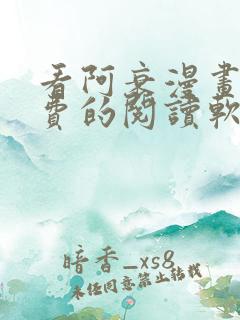 看阿衰漫畫
費的閱讀軟
暗香_xs8
未经同意禁止转载